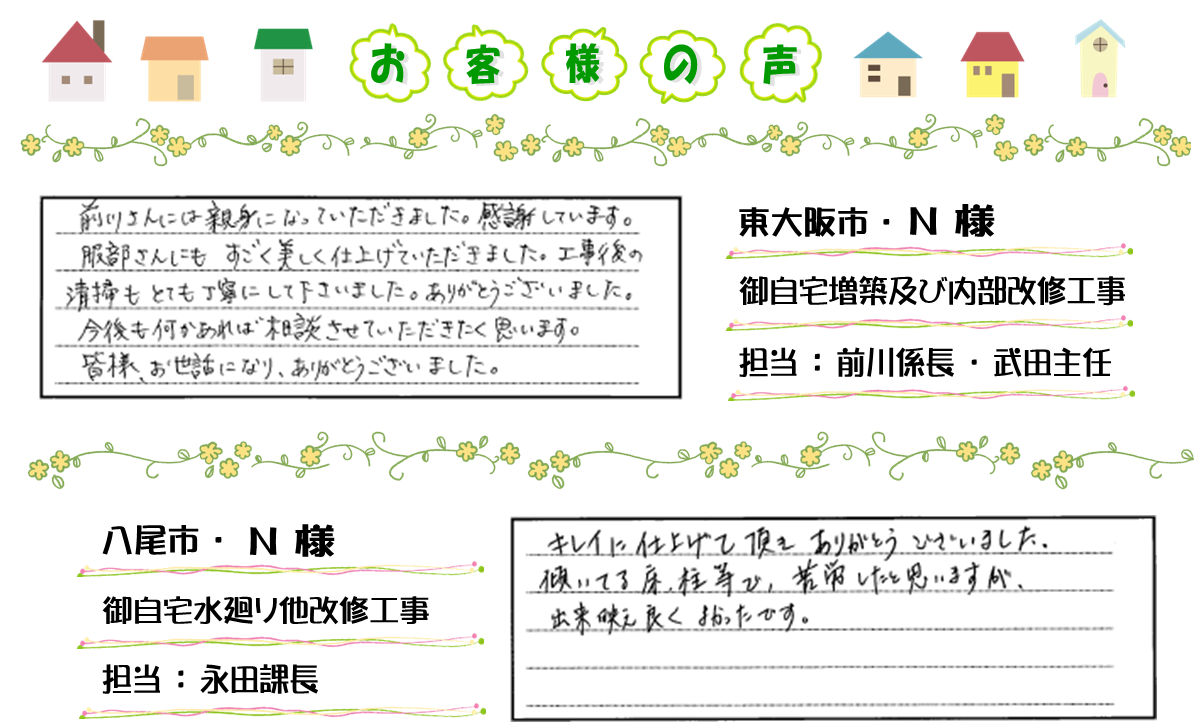 お客様の声
前川さんには親身になっていただきました。感謝しています。
服部さんにも すごく美しく仕上げていただきました。工事後の
清掃も とても丁寧にして下さいました。ありがとうございました。
今後も何かあれば相談させていただきたく思います。
皆様、お世話になり、ありがとうございました。
東大阪市・N 様
御自宅増築及び内部改修工事
担当：前川係長・武田主任
八尾市・N 様
御自宅水廻り他改修工事
担当：永田課長
キレイに仕上げて頂き ありがとうございました、
傾いてる床、柱等で、苦労したと思いますが、
出来映え良く よかったです。